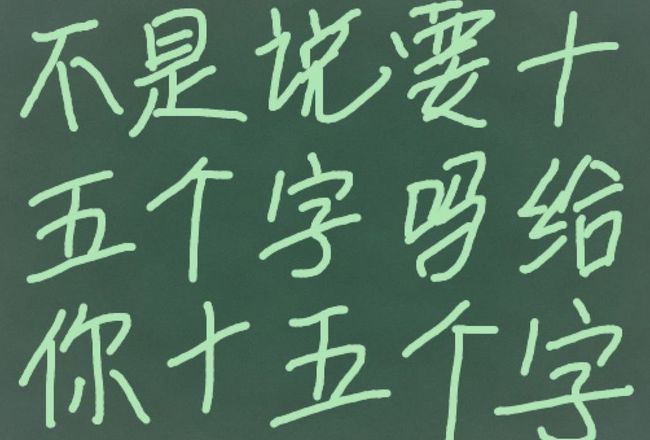 不是说要十
五个字吗给
你十五个字